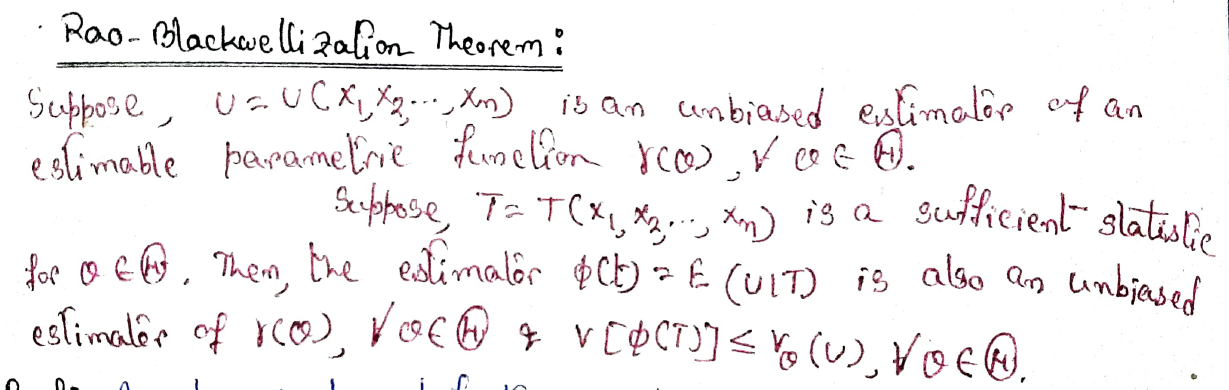 Rao-Blackwellization Theorem:
Suppose, U = U(X₁, X₂, ..., Xₙ) is an unbiased estimator of an
estimable parametric function γ(θ), ∀ θ ∈ Ⓗ.
Suppose, T = T(X₁, X₂, ..., Xₙ) is a sufficient statistic
for θ ∈ Ⓗ. Then, the estimator φ(t) = E(U|T) is also an unbiased
estimator of γ(θ), ∀ θ ∈ Ⓗ & V[φ(T)] ≤ V_θ(U), ∀ θ ∈ Ⓗ.